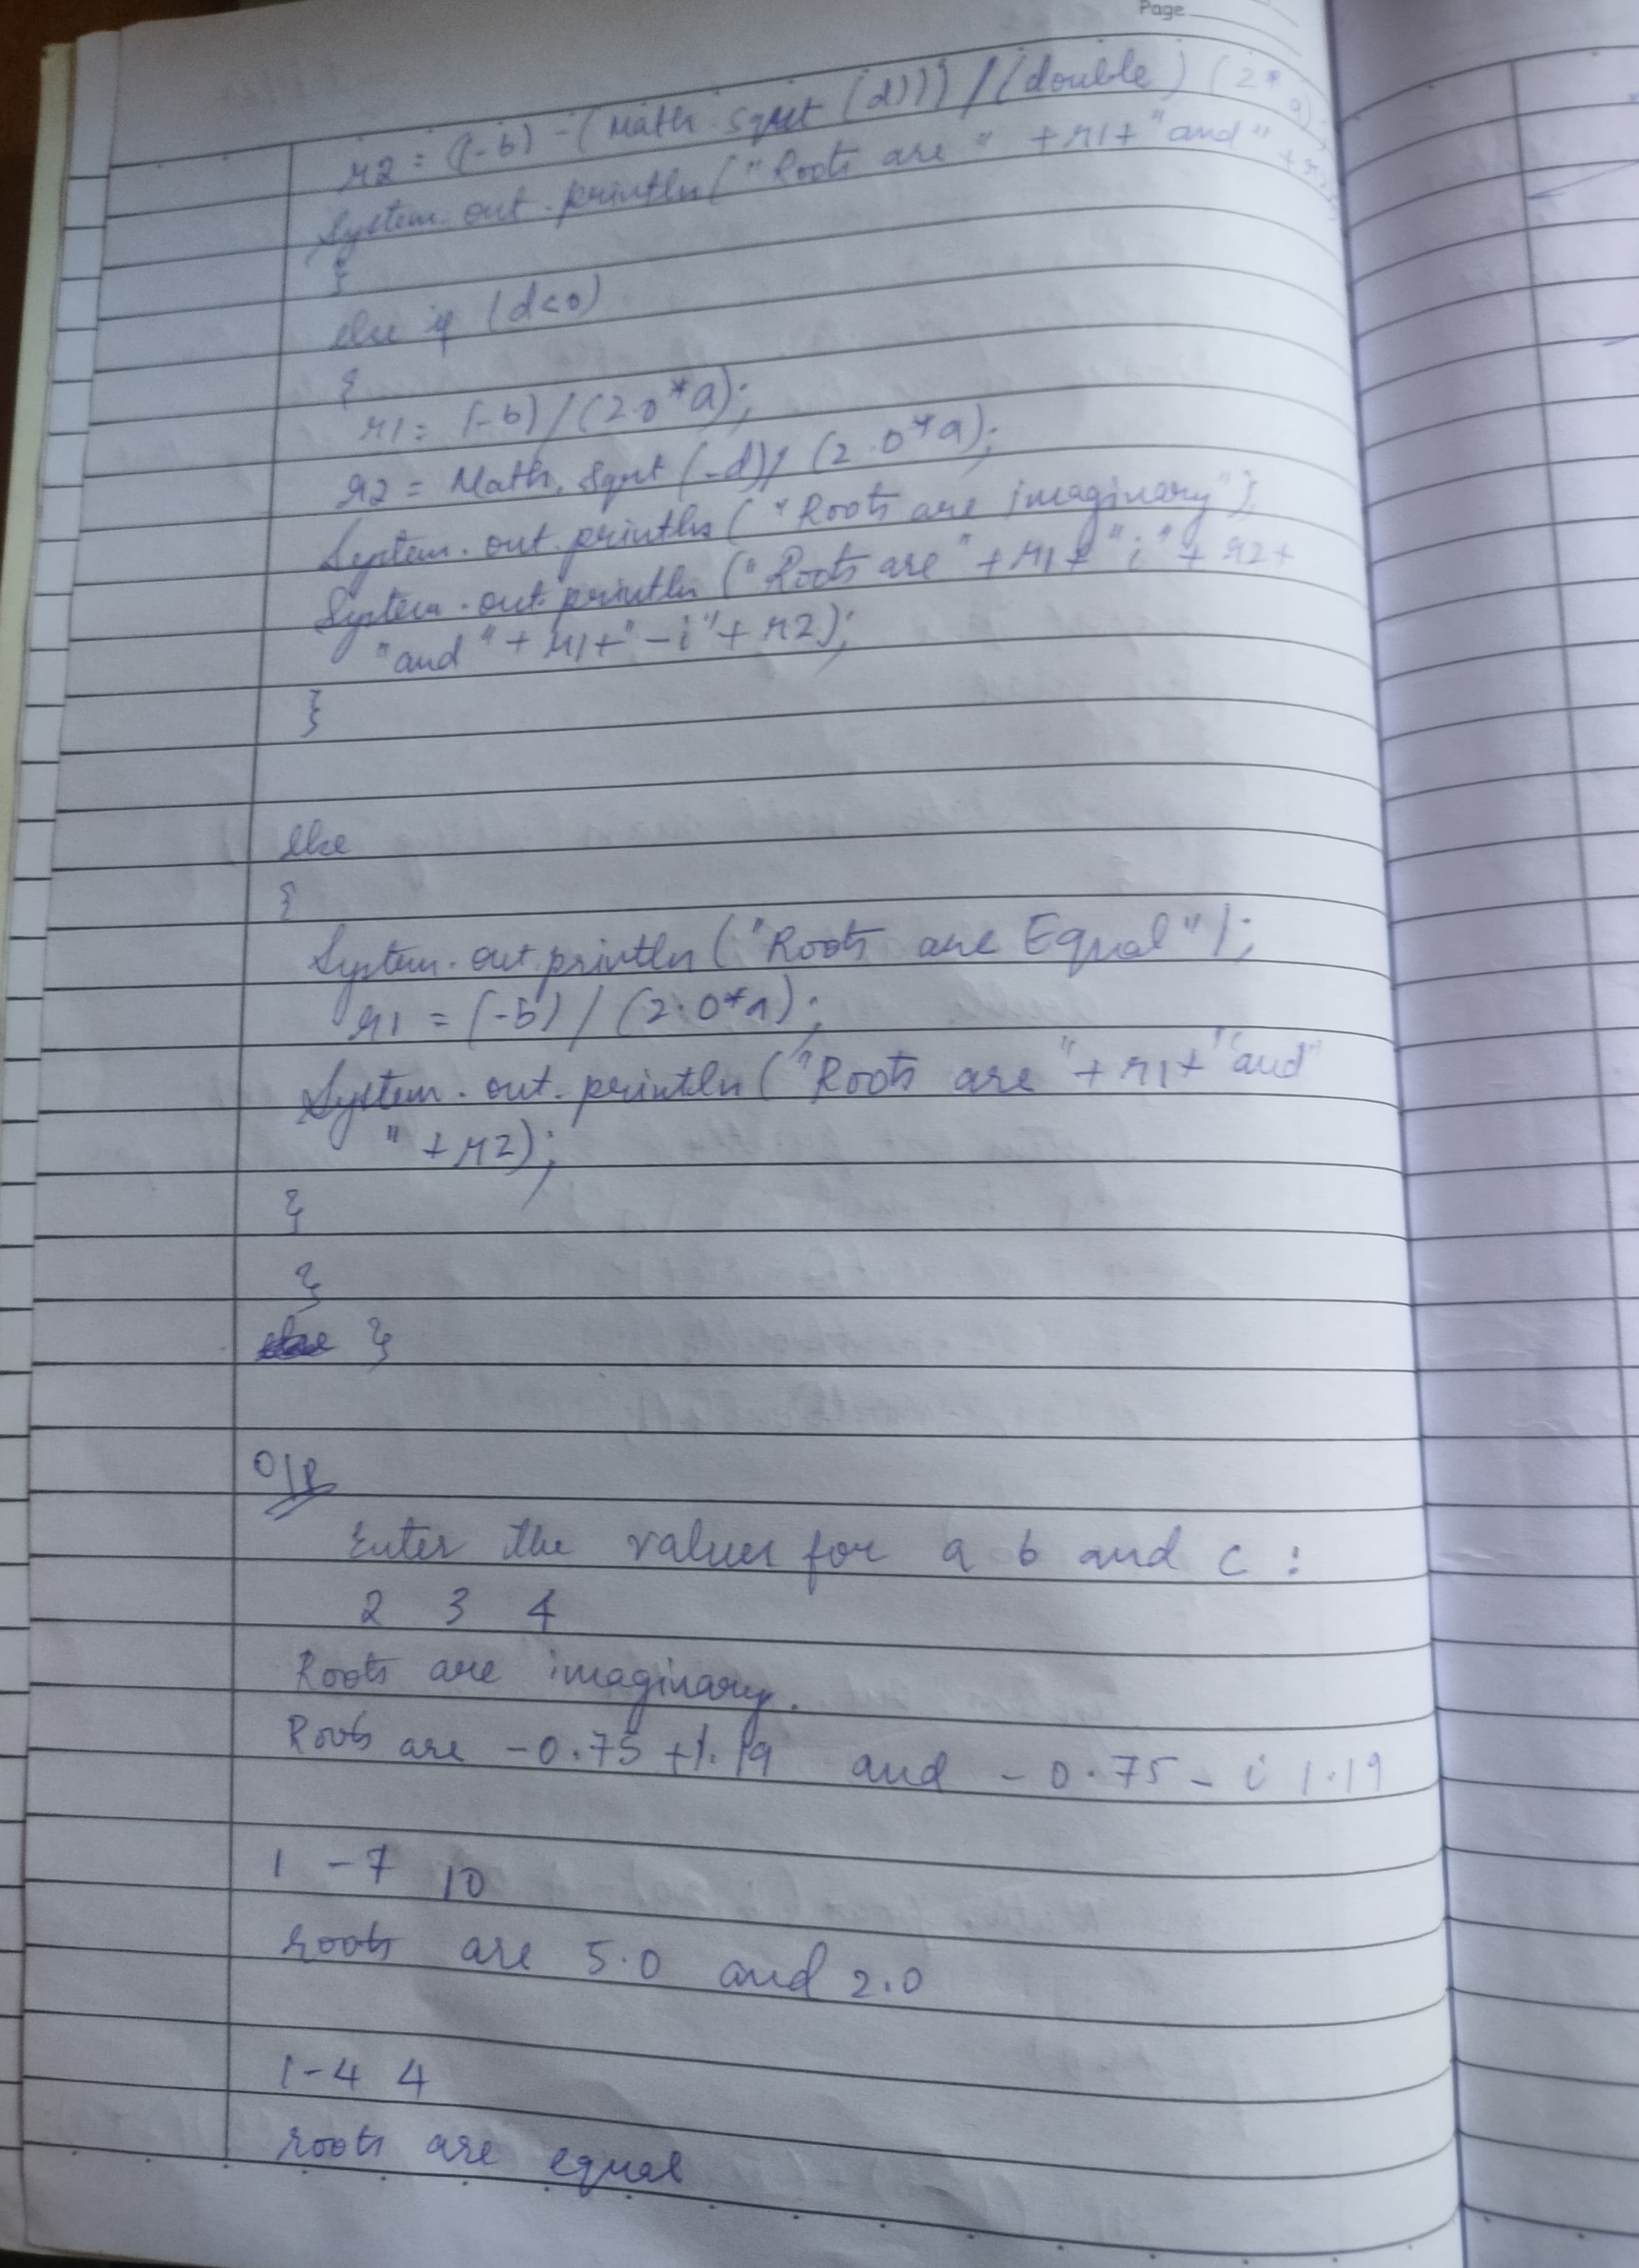 Page
r2 = ((-b) - (Math.sqrt (d))) / (double) (2*a)
System.out.println ("Roots are " + r1 + "and" + r2);
}
else if (d<0)
{
r1 = (-b) / (2.0*a);
r2 = Math.sqrt (-d) / (2.0*a);
System.out.println ("Roots are imaginary");
System.out.println ("Roots are" + r1 + "i" + r2 +
"and" + r1 + "-i" + r2);
}
else
{
System.out.println ("Roots are Equal");
r1 = (-b) / (2.0*a);
System.out.println ("Roots are" + r1 + "and
" + r2);
}
}
}
O/P
Enter the values for a b and c :
2 3 4
Roots are imaginary.
Roots are -0.75 +1.19 and -0.75 - i 1.19
1 -7 10
roots are 5.0 and 2.0
1 -4 4
roots are equal